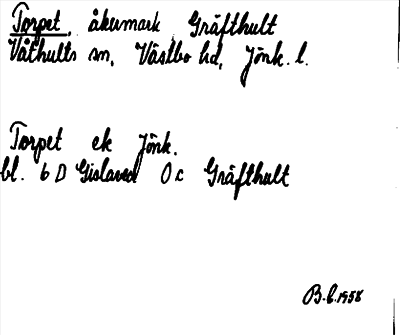 Torpet, åkermark Gräfthult
Våthults sn, Västbo hd, Jönk. l.
Torpet ek Jönk.
bl. 6 D Gislaved 0 c Gräfthult
B.L. 1958